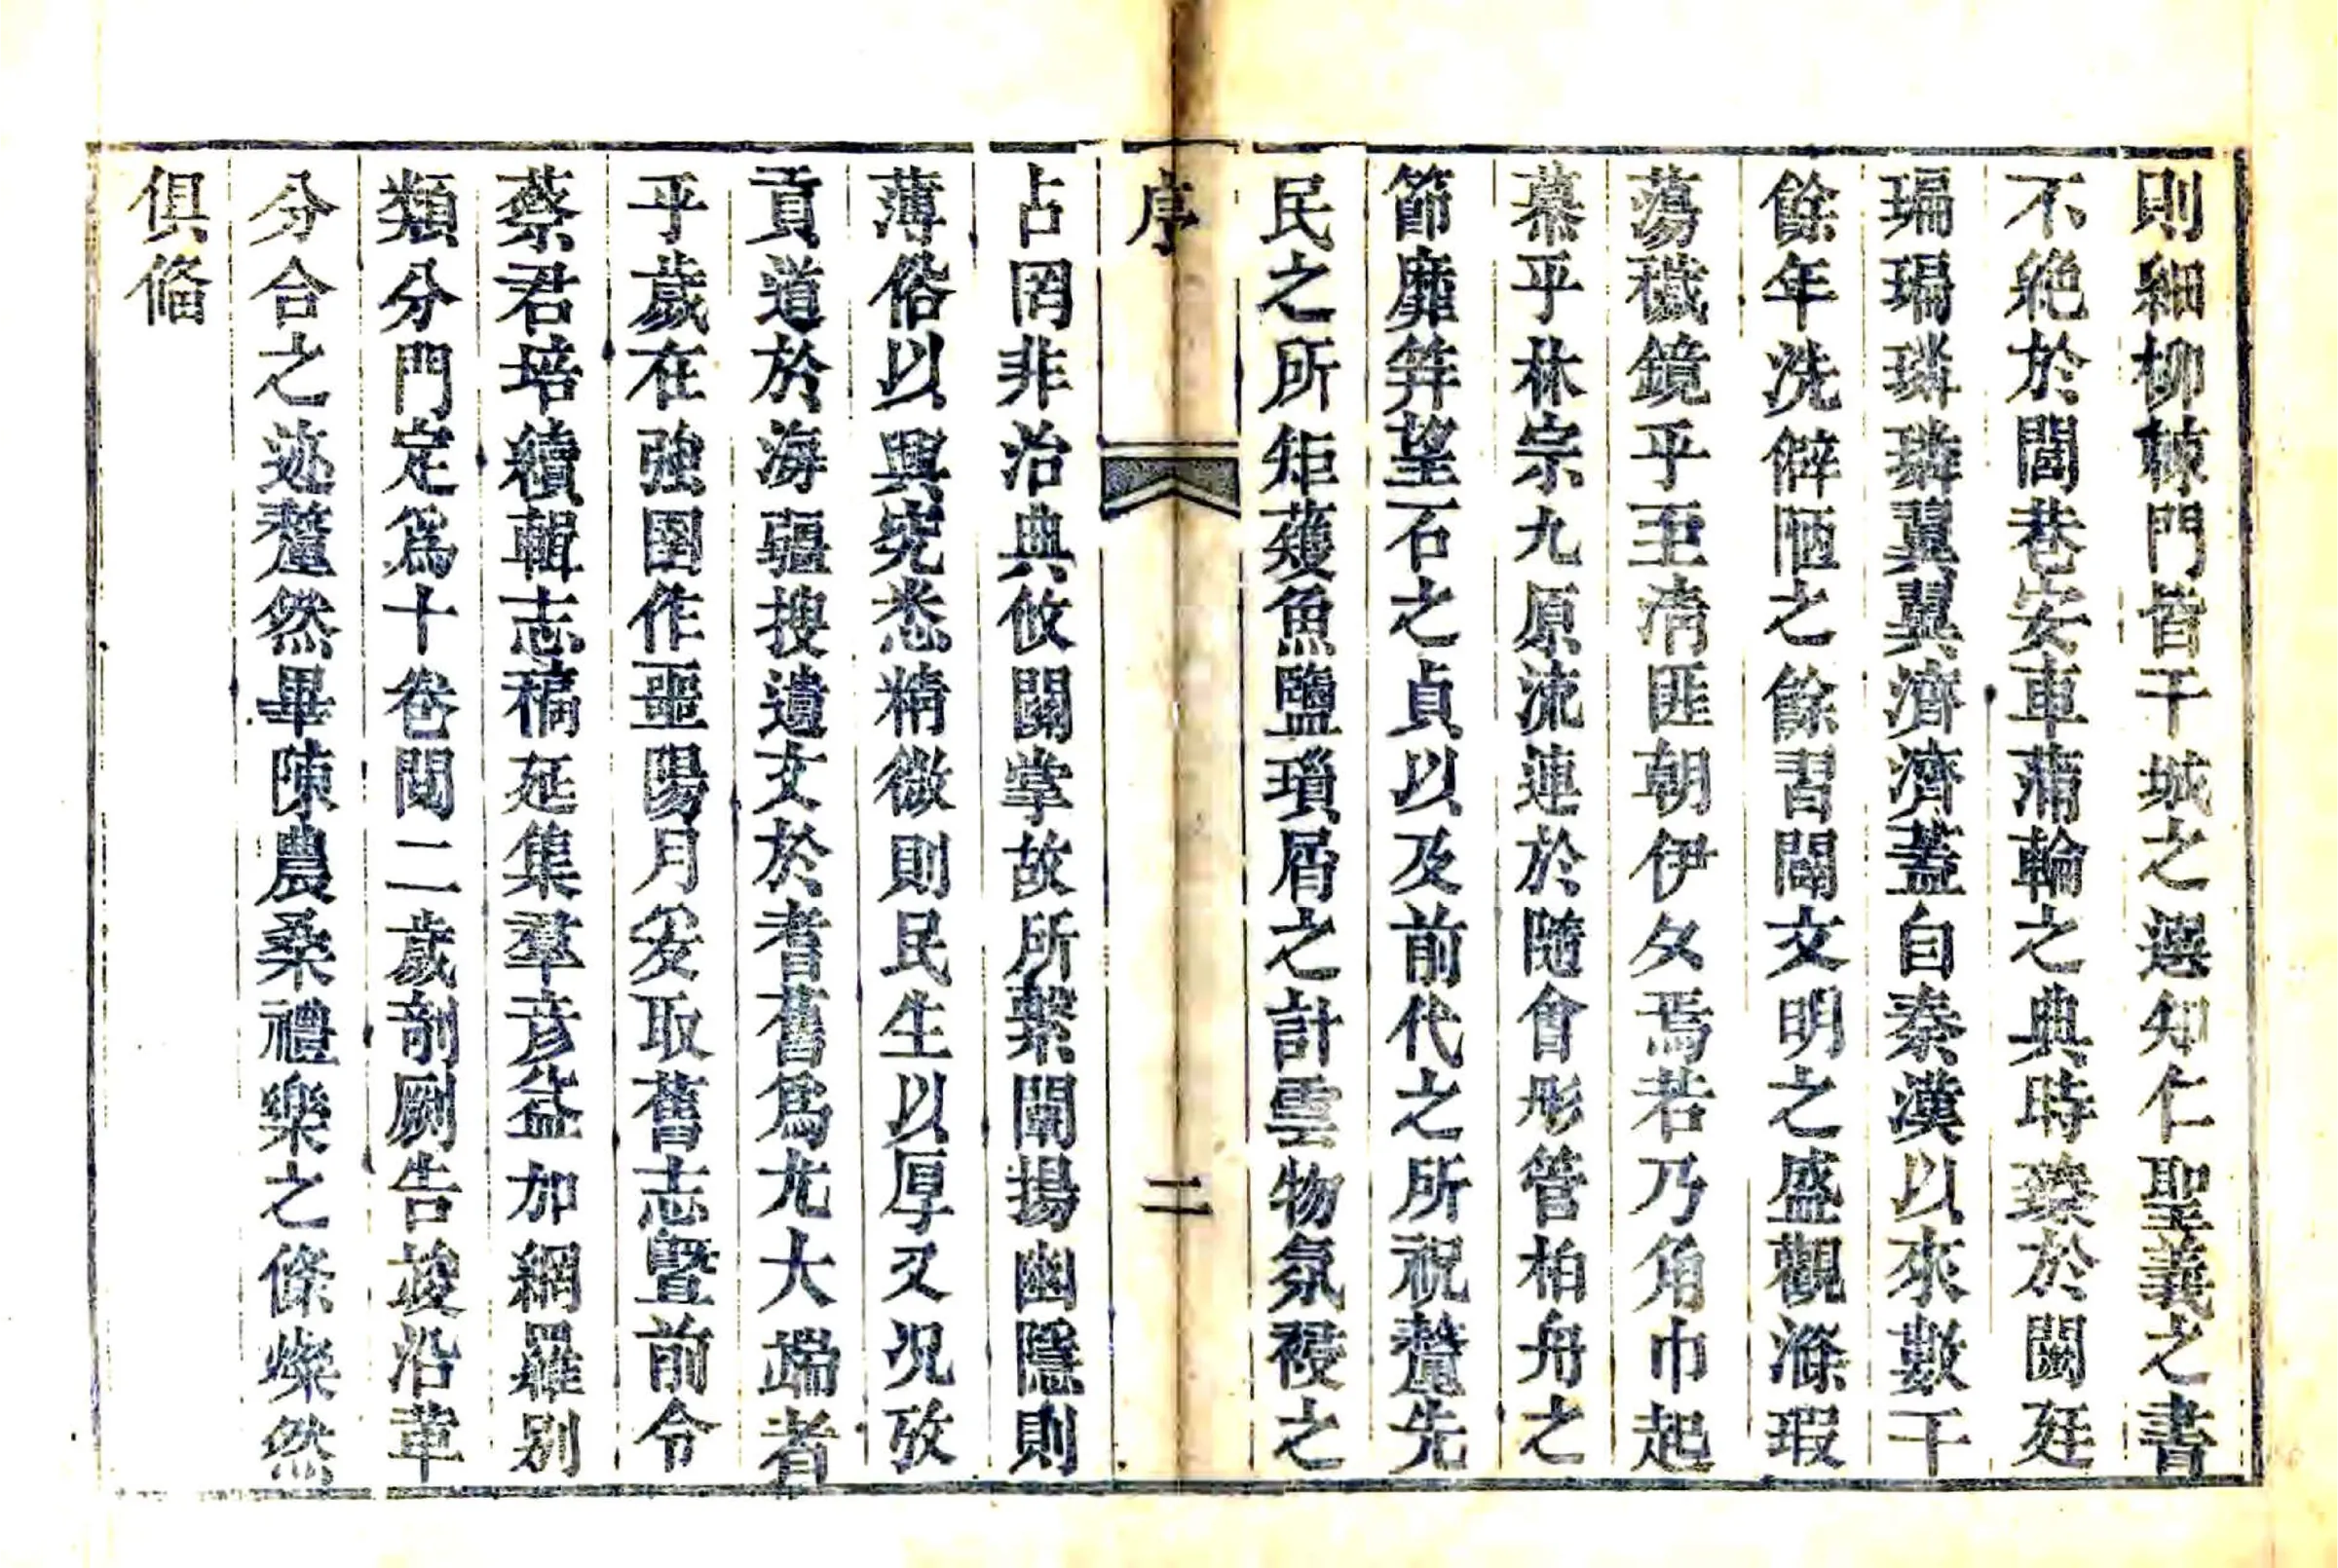 則細柳棘門皆干城之選知仁聖義之書
不絶於閭巷安車蒲輪之典時臻於闕廷
㻞㻞璘璘翼翼濟濟蓋自秦漢以來數千
餘年洗僻陋之餘習闡文明之盛觀滌瑕
蕩穢鏡乎至清匪朝伊夕焉若乃角巾起
慕乎林宗九原流連於隨會彤管柏舟之
節靡筓望石之貞以及前代之所祝釐先
民之所矩蒦魚鹽瑣屑之計雲物氛祲之
序
二
占罔非治典攸關掌故所繫闡揚幽隱則
薄俗以興究悉精微則民生以厚又况攷
貢道於海疆搜遺文於耆舊爲尤大端者
乎歲在強圉作噩陽月爰取舊志曁前令
蔡君培續輯志稿延集羣彦益加網羅别
類分門定爲十卷閲二歲剞劂告竣沿革
分合之迹釐然畢陳農桑禮樂之條燦然
俱俻